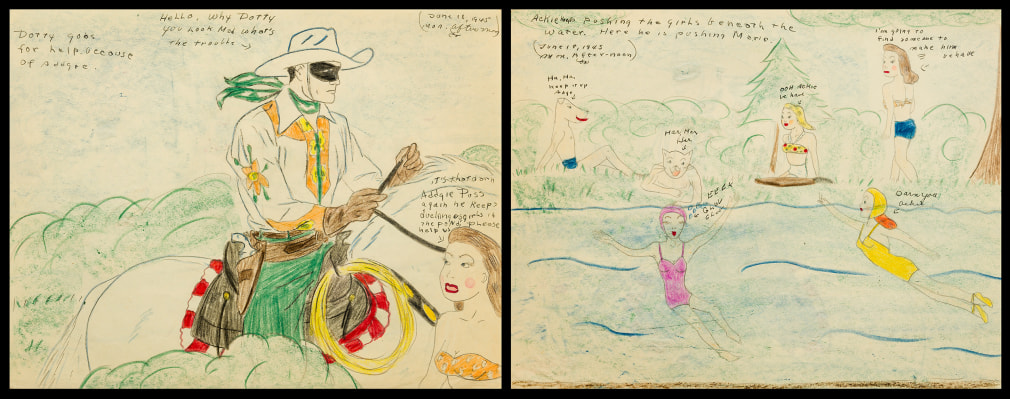 Dotty goes
for help. Because
of Addgie.
Hello, Why Dotty
you Look Mad what's
the trouble
(June 18, 1945
Mon. Afternoon)
It's that darn
Addgie Puss
again he keeps
girls in
the pond please
help us
Ackie keeps pushing the girls beneath the
water. Here he is pushing Marie.
(June 18, 1945
Mon. After-noon)
Ha, Ha,
keep it up
Addgie
Har, Har,
OOH Ackie
behave
I'm going to
find someone to
make him
behave
EEEK
Darn you
Ackie